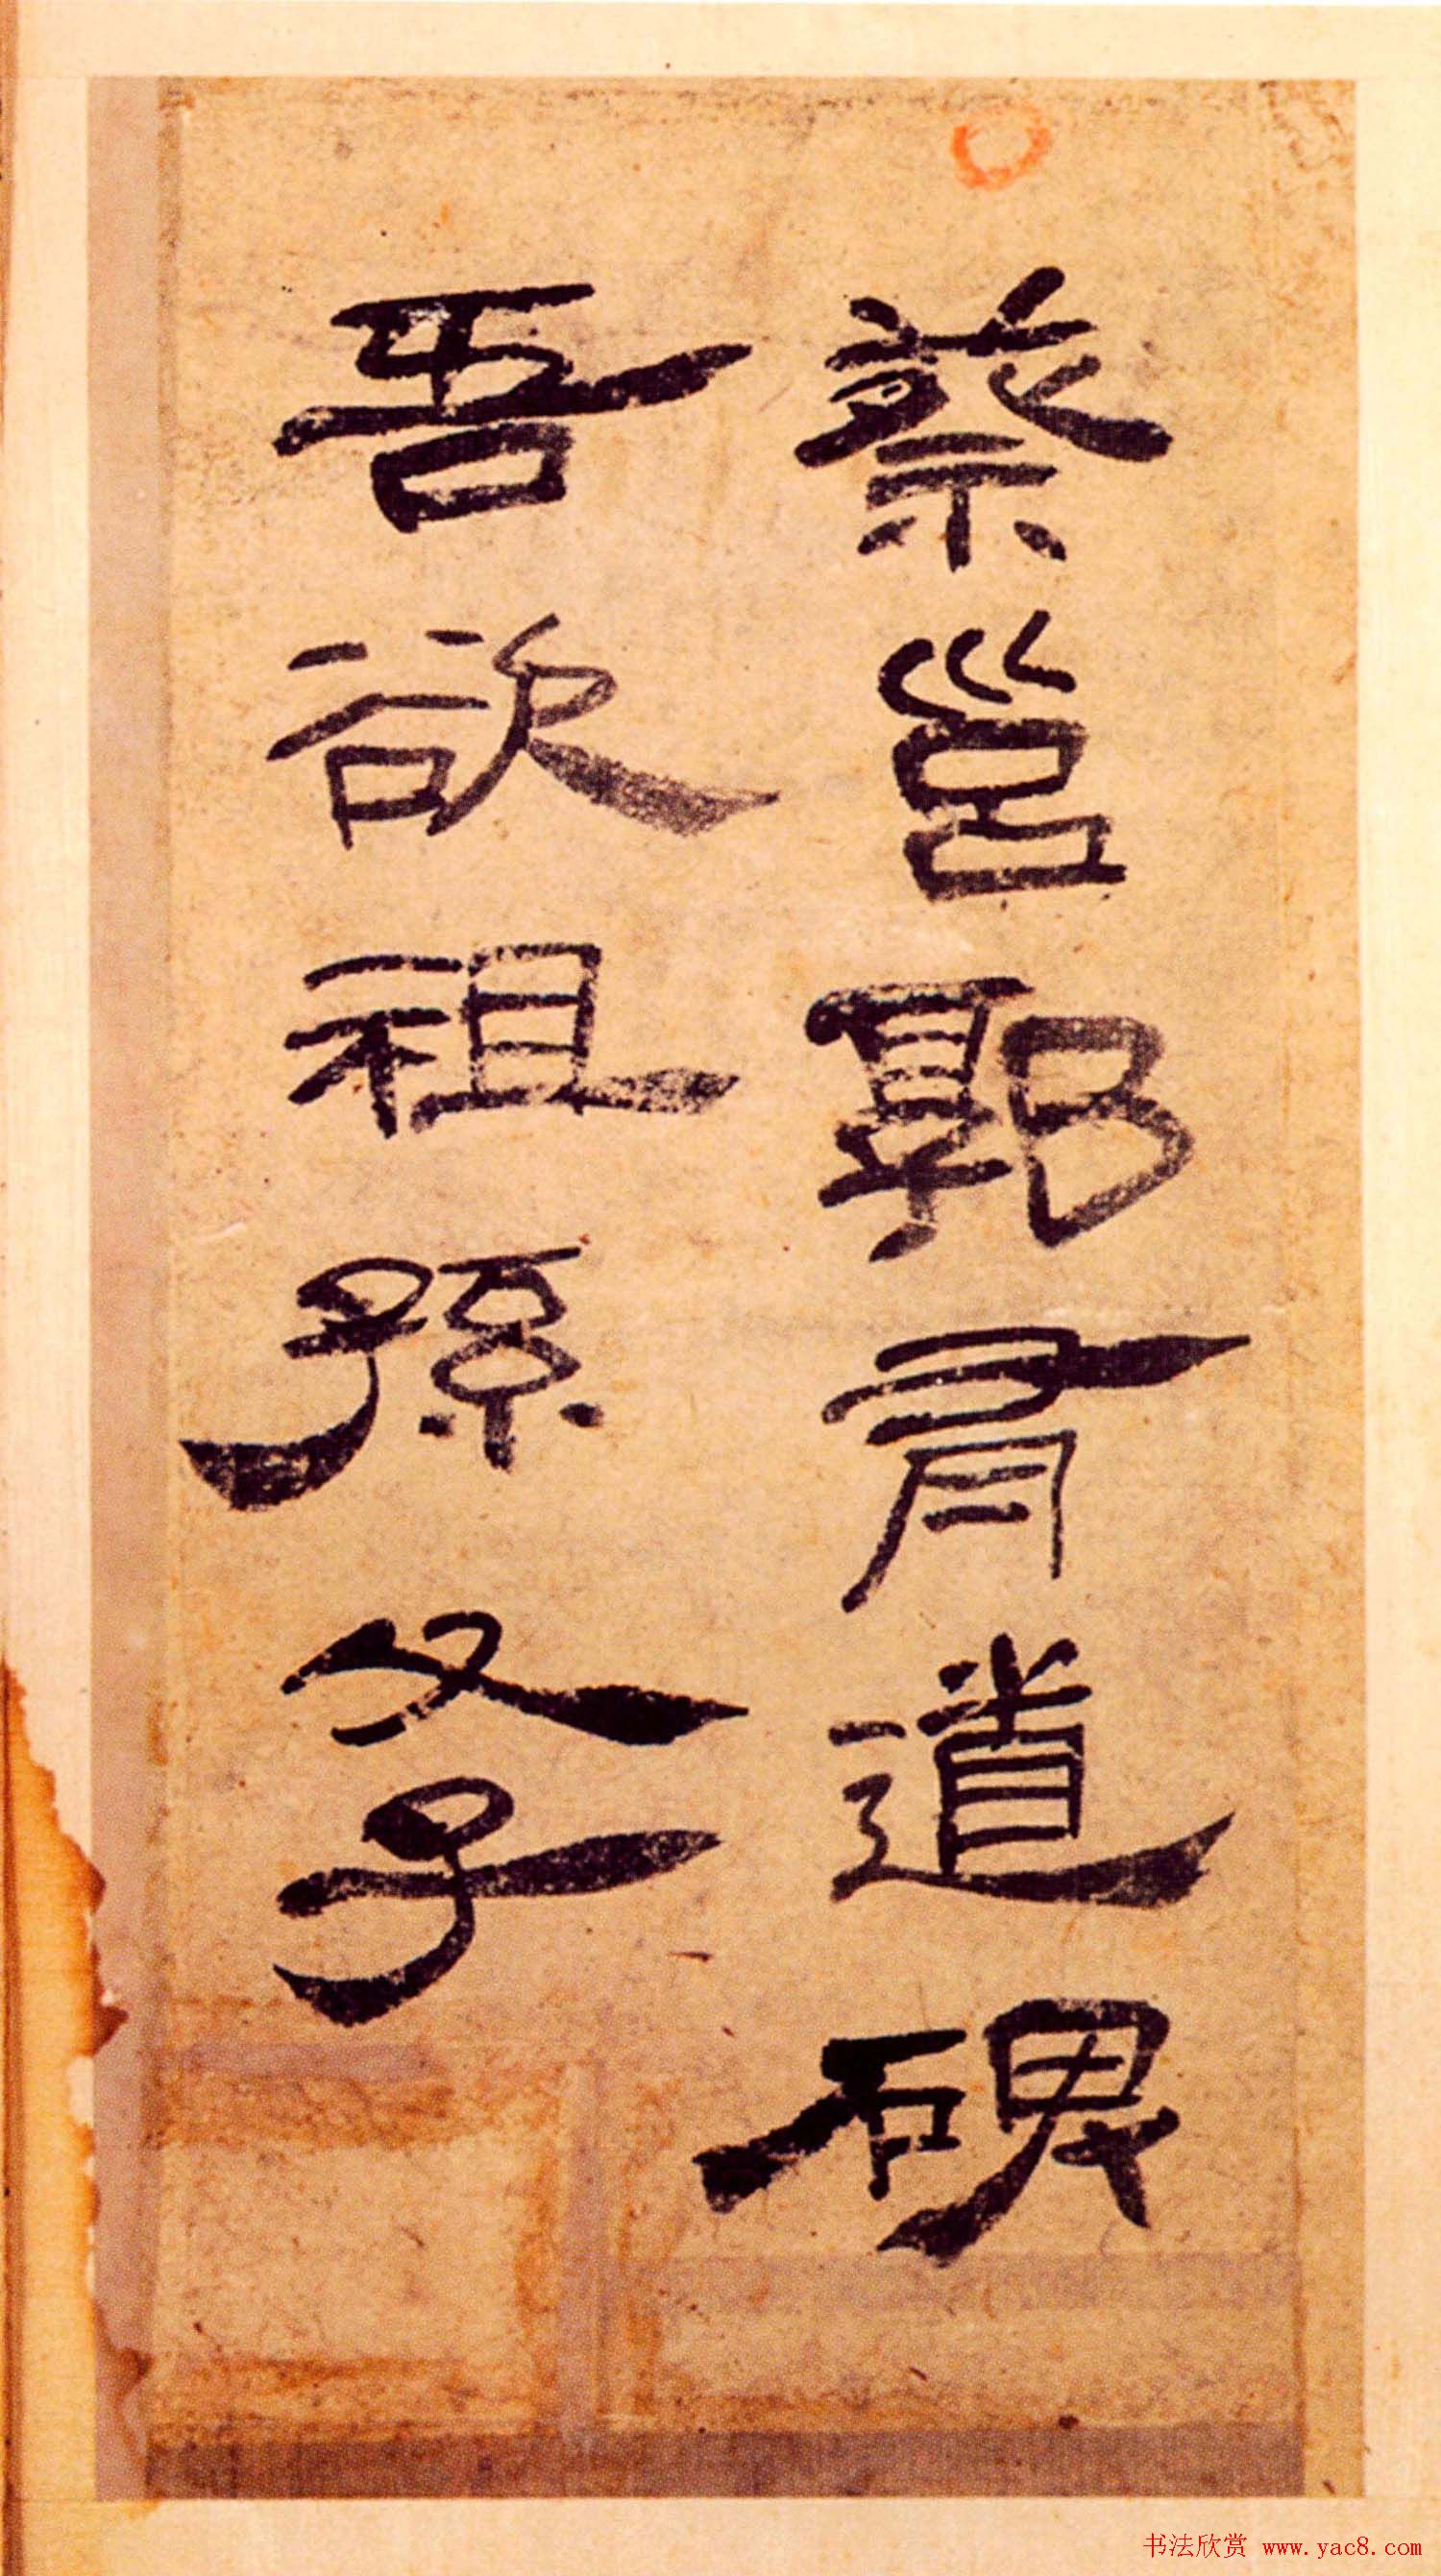 蔡邕郭有道碑
吾欲祖孫父子
书法欣赏 www.yac8.com